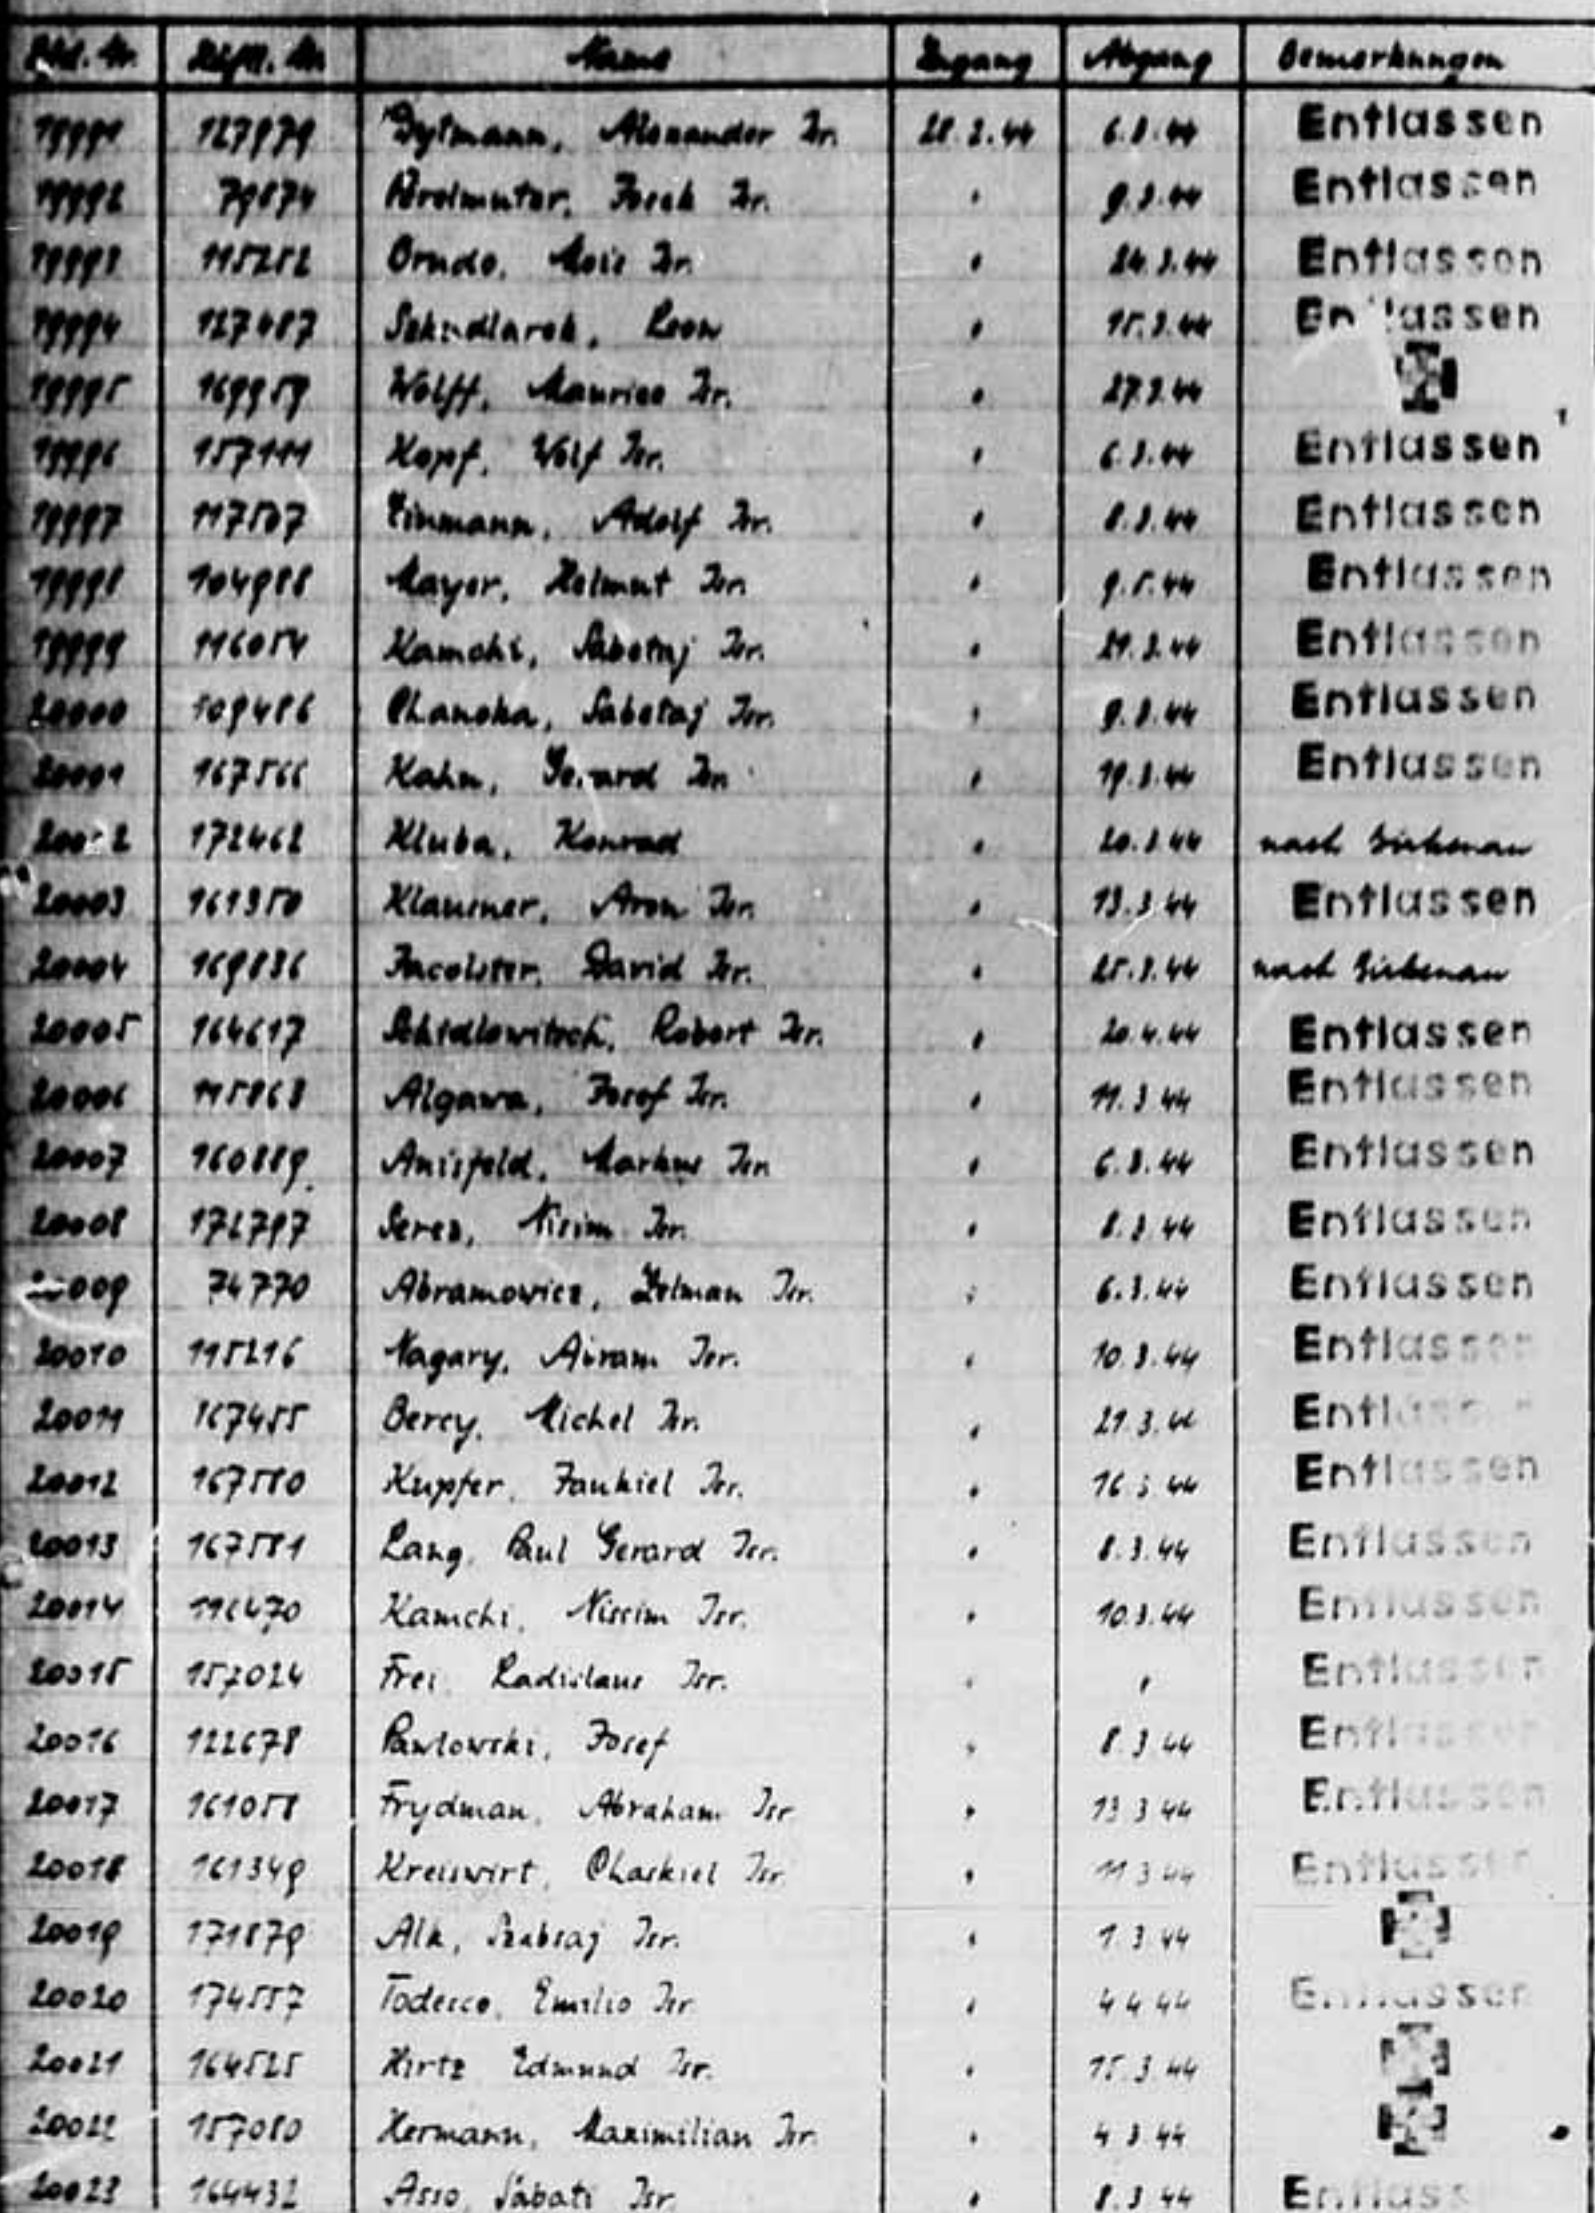 Name Zugang Abgang Bemerkungen
19991 127979 Alexander Isr. 28.2.44 6.3.44 Entlassen
19992 79674 Isr. " 9.3.44 Entlassen
19993 115252 Isr. " 24.3.44 Entlassen
19994 127487 Leon " 15.3.44 Entlassen
19995 169959 Wolff, Maurice Isr. " 27.3.44
19996 157111 Kopf, Wolf Isr. " 6.3.44 Entlassen
19997 Adolf Isr. " 8.3.44 Entlassen
19998 104988 Mayer, Helmut Isr. " 9.5.44 Entlassen
19999 Kamchi, Sabetaj Isr. " Entlassen
20000 109486 Chanoka, Sabetaj Isr. " 9.3.44 Entlassen
20001 167566 Kahn, Gerard Isr. " 19.3.44 Entlassen
20002 172462 Kluba, Konrad " 20.3.44 nach Birkenau
20003 161350 Klausner, Aron Isr. " 13.3.44 Entlassen
20004 169836 David Isr. " 25.3.44 nach Birkenau
20005 164617 Schidlowitsch, Robert Isr. " 20.4.44 Entlassen
20006 Algawa, Josef Isr. " 11.3.44 Entlassen
20007 160889 Anisfeld, Markus Isr. " 6.3.44 Entlassen
20008 172797 Nissim Isr. " 8.3.44 Entlassen
20009 74770 Abramowicz, Zelman Isr. " 6.3.44 Entlassen
20010 115216 Nagary, Avram Isr. " 10.3.44 Entlassen
20011 167455 Bercy, Michel Isr. " 21.3.44 Entlassen
20012 167580 Kupfer, Jankiel Isr. " 16.3.44 Entlassen
20013 167581 Lang, Paul Gerard Isr. " 8.3.44 Entlassen
20014 116470 Kamchi, Nissim Isr. " 10.3.44 Entlassen
20015 157024 Frei, Ladislaus Isr. " " Entlassen
20016 122678 Pawlowski, Josef " 8.3.44 Entlassen
20017 161058 Frydman, Abraham Isr. " 13.3.44 Entlassen
20018 161349 Kreiswirt, Chaskiel Isr. " 11.3.44 Entlassen
20019 171879 Alk, Isr. " 1.3.44
20020 174557 Todesco, Emilio Isr. " 4.4.44 Entlassen
20021 164525 Hirtz Edmund Isr. " 15.3.44
20022 157080 Hermann, Maximilian Isr. " 4.3.44
20023 164432 Asso, Sabati Isr. " 8.3.44 Entlassen